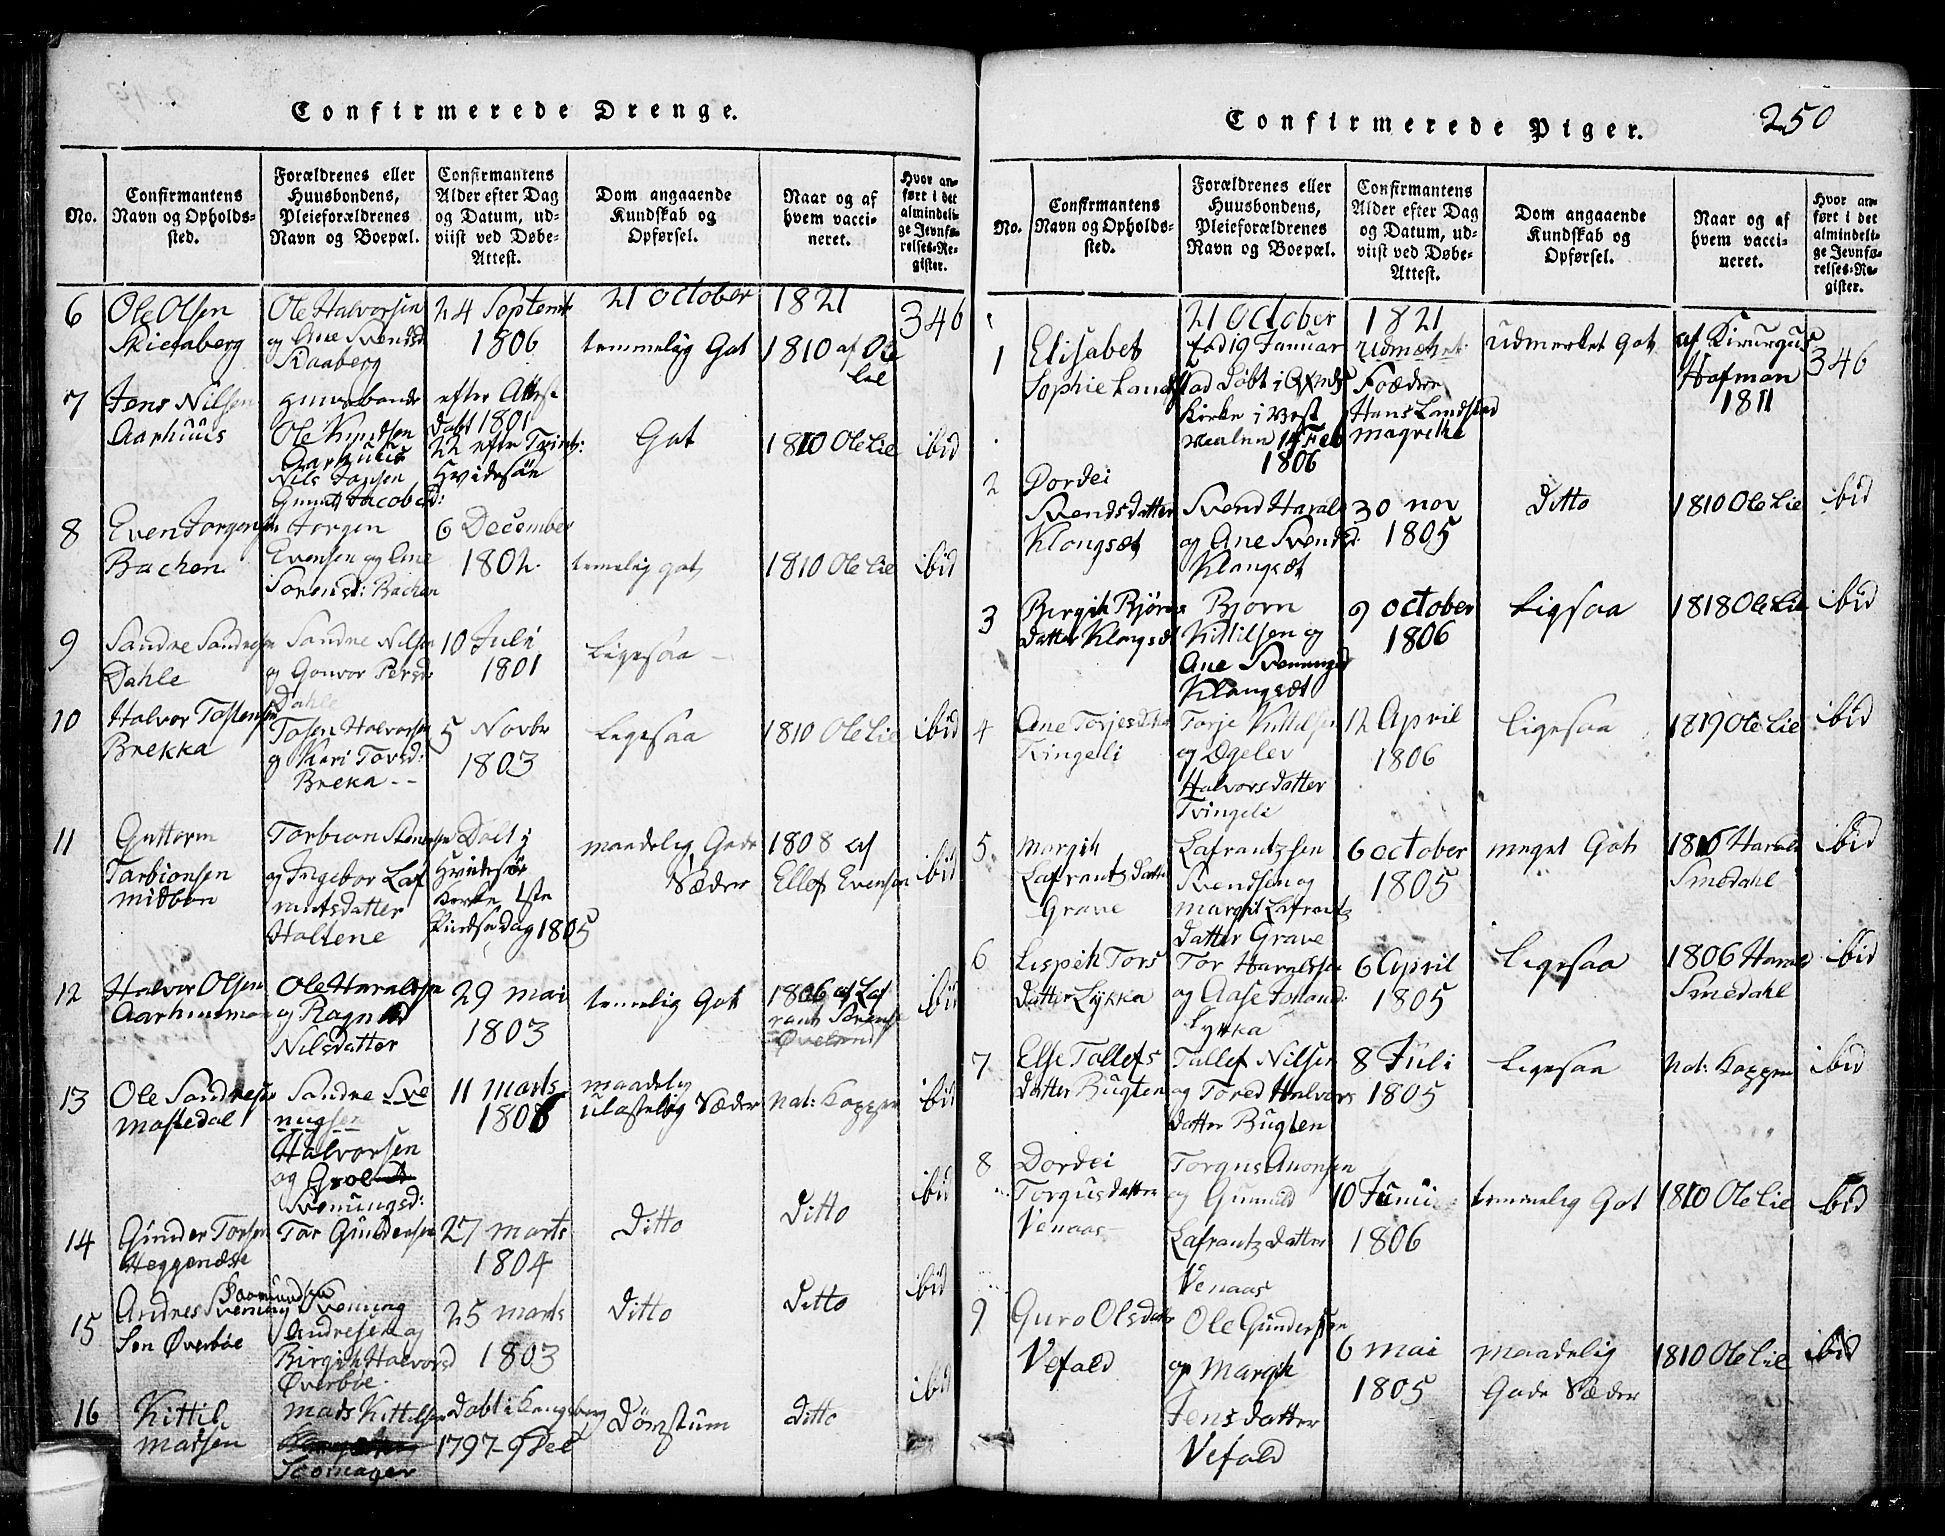 Confirmerede Drenge.
No.
Confirmantens
Navn og Opholds-
sted.
Forældrenes eller
Huusbondens,
Pleieforældrenes
Navn og Boepæl.
Confirmantens
Alder efter Dag
og Datum, ud-
viist ved Døbe-
Attest.
Dom angaaende
Kundskab og
Opførsel.
Naar og af
hvem vacci-
neret.
Hvor an-
ført i det
almindeli-
ge Jevnfø-
relses-Re-
gister.
21 october 1821
6
Ole Olsen
Skieaberg
Ole Halvorsen
og Ane Svendsd
Skaaberg
24 Septemb
1806
temmelig Got
1810 af Ole
Lie
346
7
Jens Nilsen
Aarhuus
Huusbonde
Ole Knudsen
Aarhuus
Nils Jassen
Gunil Jacobsd:
efter Attest
døbt 1801
22 efter Trinit:
Hvidesøe
Got
1810 Ole Lie
ibid
8
Even Jorgensen
Bachen
Jorgen
Evensen og Ane
Sorensd: Bachen
6 December
1802
temelig got
1810 Ole Lie
ibid
9
Sandre Sandresen
Dahle
Sandre Nilsen
og Gonvor Persd
Dahle
10 Juli
1801
Ligesaa -
10
Halvor Tostensen
Brekka
Tosen Halvorsen
og Kari Torsd:
Breka - -
5 Novbr
1803
Ligesaa
1810 Ole Lie
ibid
11
Guttorm
Tarbionsen
midbøn
Torbion Stenersen
og Ingebor Laf
rantsdatter
Haltene
Dobt i
Hvidesøe
Kerke 1ste
Pindse dag 1805
maadelig Gode
Sæder
1808 af
Ellef Evensen
ibid
12
Halvor Olsen
Aarhusmoe
Ole Haralsen
og Ragnild
Nilsdatter
29 mai
1803
temelig Got
1806 af Laf
rants Sørense
Øveland
ibid
13
Ole Sandresen
mostedal
Sandre Sve
nugsen
Halvorsen
og Groe
Svenungsd:
11 marts
1806
maadelig
ulastelig Sæder
Nat: Kopper
ibid
14
Gunder Torsen
Heggendse
Tor Gundersen
27 marts
1804
Ditto
Ditto
ibid
15
Andres Svenung
Søn Øverbøe
Svenung
Andresen og
Birgith Halvorsd
Øverbøe.
25 marts
1803
Ditto
Ditto
ibid
16
Kittil
Matsen
Mads Kittelsen
Scomager
Døbt i Kongsberg
1797 - 9 Dec
Ditto
ibid
Confirmerede Piger.
250
No.
Confirmantens
Navn og Opholds-
sted.
Forældrenes eller
Huusbondens,
Pleieforældrenes
Navn og Boepæl.
Confirmantens
Alder efter Dag
og Datum, ud-
viist ved Døbe-
Attest.
Dom angaaende
Kundskab og
Opførsel.
Naar og af
hvem vacci-
neret.
Hvor an-
ført i det
almindeli-
ge Jevnfø-
relses-Re-
gister.
21 October 1821
1
Elisabet
Sophie Landstad
fød 19 Januar
Døbt i
Kirke i Vest
14 Feb
1806
Foædre
Hans Landstad
magrethe
udmerket Got
af Kirurgus
Hofman
1811
346
2
Dordei
Svendsdatter
Klongsæt
Svend Harals
og Ane Svendsd:
Klangsæt
30 nov
1805
Ditto
1810 Ole Lie
ibid
3
Birgith Bjørns
datter Klongsæt
Bjorn
Kittilsen og
Ane Svenungsd
Klangsæt
9 october
1806
Ligsaa
1818 Ole Lie
ibid
4
Ane Torjesdatter
Tvingeli
Torje Kittilsen
og Egelev
Halvorsdatter
Tvingeli
12 April
1806
Ligesaa
1819 Ole Lie
ibid
5
Morgith
Lafrantzdatter
Grave
Lafrantzsen
Svendsen og
Margit Lafrantz
datter Grave
6 october
1805
meget Got
1810 Harald
Smedahl
ibid
6
Lispeth Tors
datter Lykka
Tor Haraldsen
og Aase Joland:
Lykka
6 April
1805
Ligesaa
1806 Harald
Smedahl
ibid
7
Else Tollefs
datter Bugten
Tallef Nilsen
og Tored Halvors
datter Bugten
8 Juli
1805
Ligesaa
Nat: Kopper
ibid
8
Dordei
Torgusdatter
Venaas
Torgus Aaonsen
og Gunnild
Lafrantzdatter
Venaas
10 Juni
1806
temmelig Got
1810 Ole Lie
ibid
9
Guro Olsdatter
Vefald
Ole Gundersen
og Margith
Jensdatter
Vefald
6 mai
1805
maadelig
Gode Sæder
1810 Ole Lie
ibid